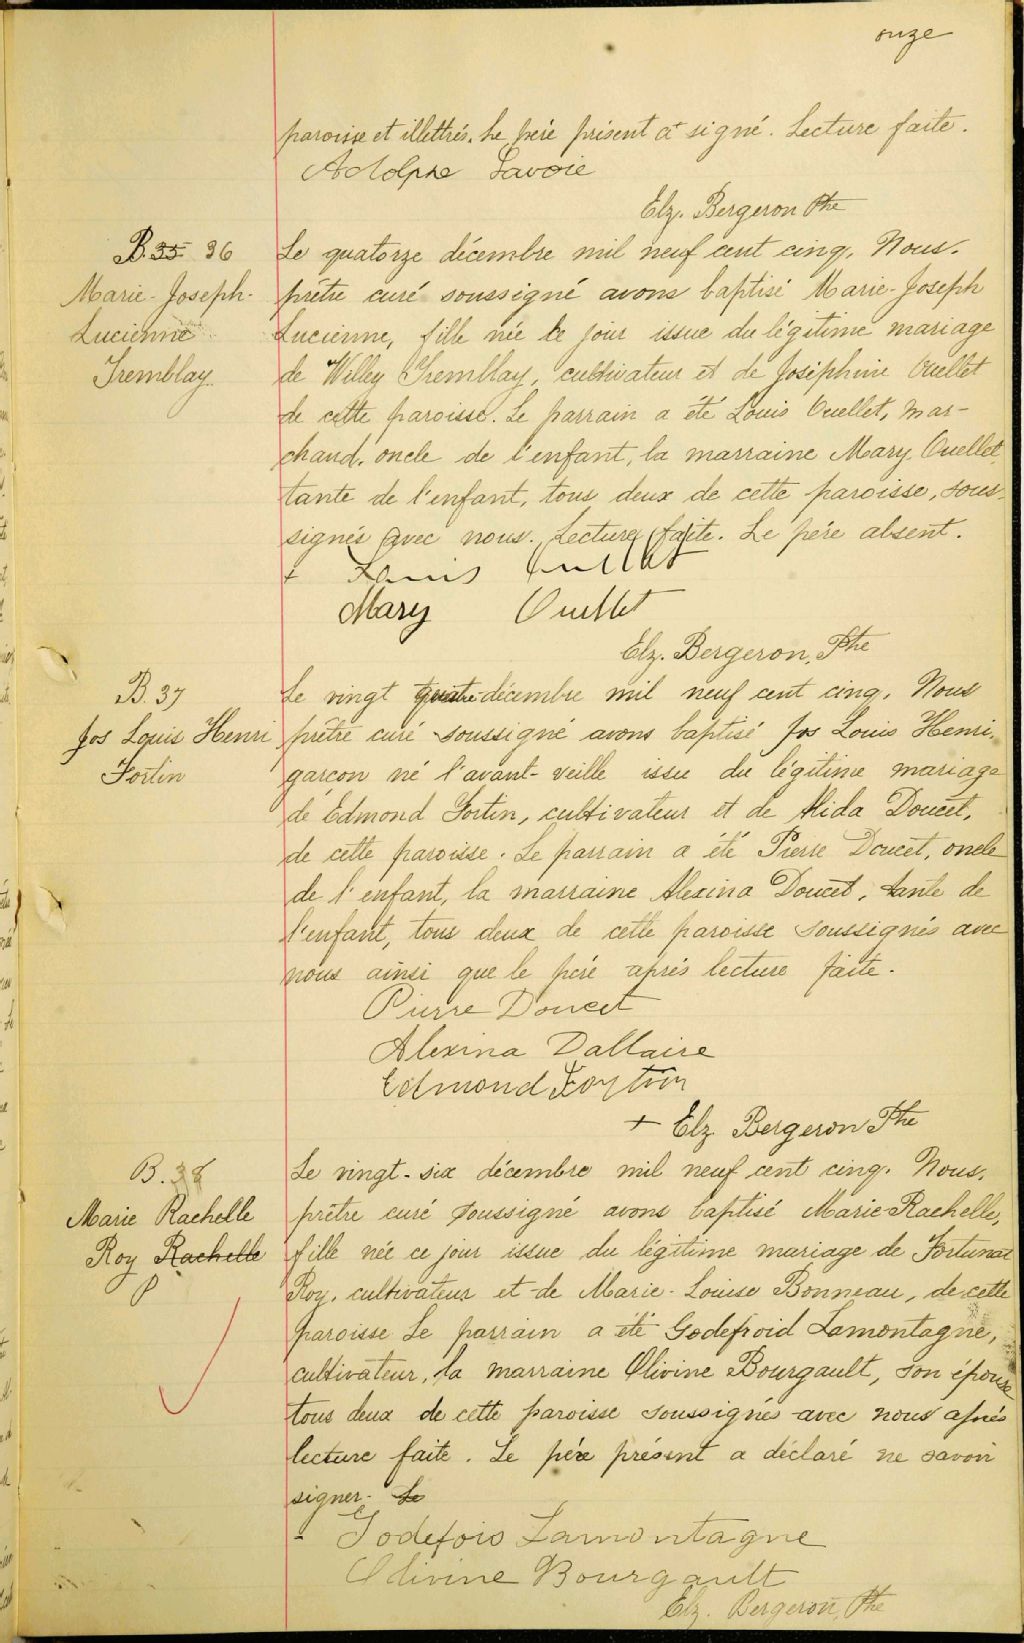 onze
paroisse et illettrés. Le père présent a signé. Lecture faite.
Adolphe Savoie
Elz. Bergeron Ptre
B. 35 36
Marie-Joseph-
Lucienne
Tremblay
Le quatorze décembre mil neuf cent cinq, Nous,
prêtre curé soussigné avons baptisé Marie-Joseph
Lucienne, fille née le jour issue du légitime mariage
de Willey Tremblay, cultivateur et de Joséphine Ouellet
de cette paroisse. Le parrain a été Louis Ouellet, mar-
chand, oncle de l'enfant, la marraine Mary Ouellet,
tante de l'enfant, tous deux de cette paroisse, sous-
signés avec nous. Lecture faite. Le père absent.
+ Louis Ouellet
Mary Ouellet
Elz. Bergeron, Ptre
B. 37
Jos Louis Henri
Fortin
Le vingt quatre décembre mil neuf cent cinq, Nous
prêtre curé soussigné avons baptisé Jos Louis Henri,
garcon né l'avant-veille issu du légitime mariage
de Edmond Fortin, cultivateur et de Alida Doucet,
de cette paroisse. Le parrain a été Pierre Doucet, oncle
de l'enfant, la marraine Alexina Doucet, tante de
l'enfant, tous deux de cette paroisse soussignés avec
nous ainsi que le père après lecture faite.
Pierre Doucet
Alexina Dallaire
Edmond Fortin
+ Elz Bergeron Ptre
B. 38
Marie Rachelle
Roy Rachelle
P
Le vingt-six décembre mil neuf cent cinq, Nous,
prêtre curé soussigné avons baptisé Marie-Rachelle,
fille née ce jour issue du légitime mariage de Fortunat
Roy, cultivateur et de Marie-Louise Bonneau, de cette
paroisse Le parrain a été Godefroid Lamontagne,
cultivateur, la marraine Olivine Bourgault, son épouse
tous deux de cette paroisse soussignés avec nous après
lecture faite. Le père présent a déclaré ne savoir
signer. Le
Godefois Lamontagne
Olivine Bourgault
Elz. Bergeron, Ptre